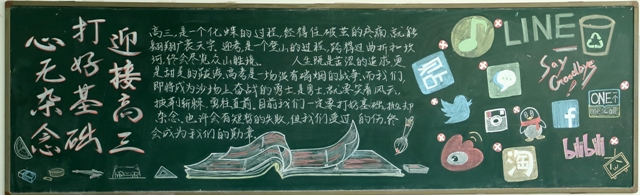 迎接高三
打好基础
心无杂念
高三,是一个化蝶的过程,经得住破茧的疼痛,就能
翱翔扩袤天宇,迎考,是一个登山的过程,跨得过曲折和坎
坷,终会尽览众山胜境。 人生既是苦涩的追求,更
是甜美的
高考是一场没有硝烟的战争,而我们,
即将成为沙场上奋战的勇士,是勇士,就应笑看风云,
披荆斩棘,勇往直前,目前我们一定要打好基础,抛却
杂念,也许会有短暂的失败,但我们受过的伤,终
会成为我们的勋章
LINE
Say
Goodbye
ONE
淘
bilibili